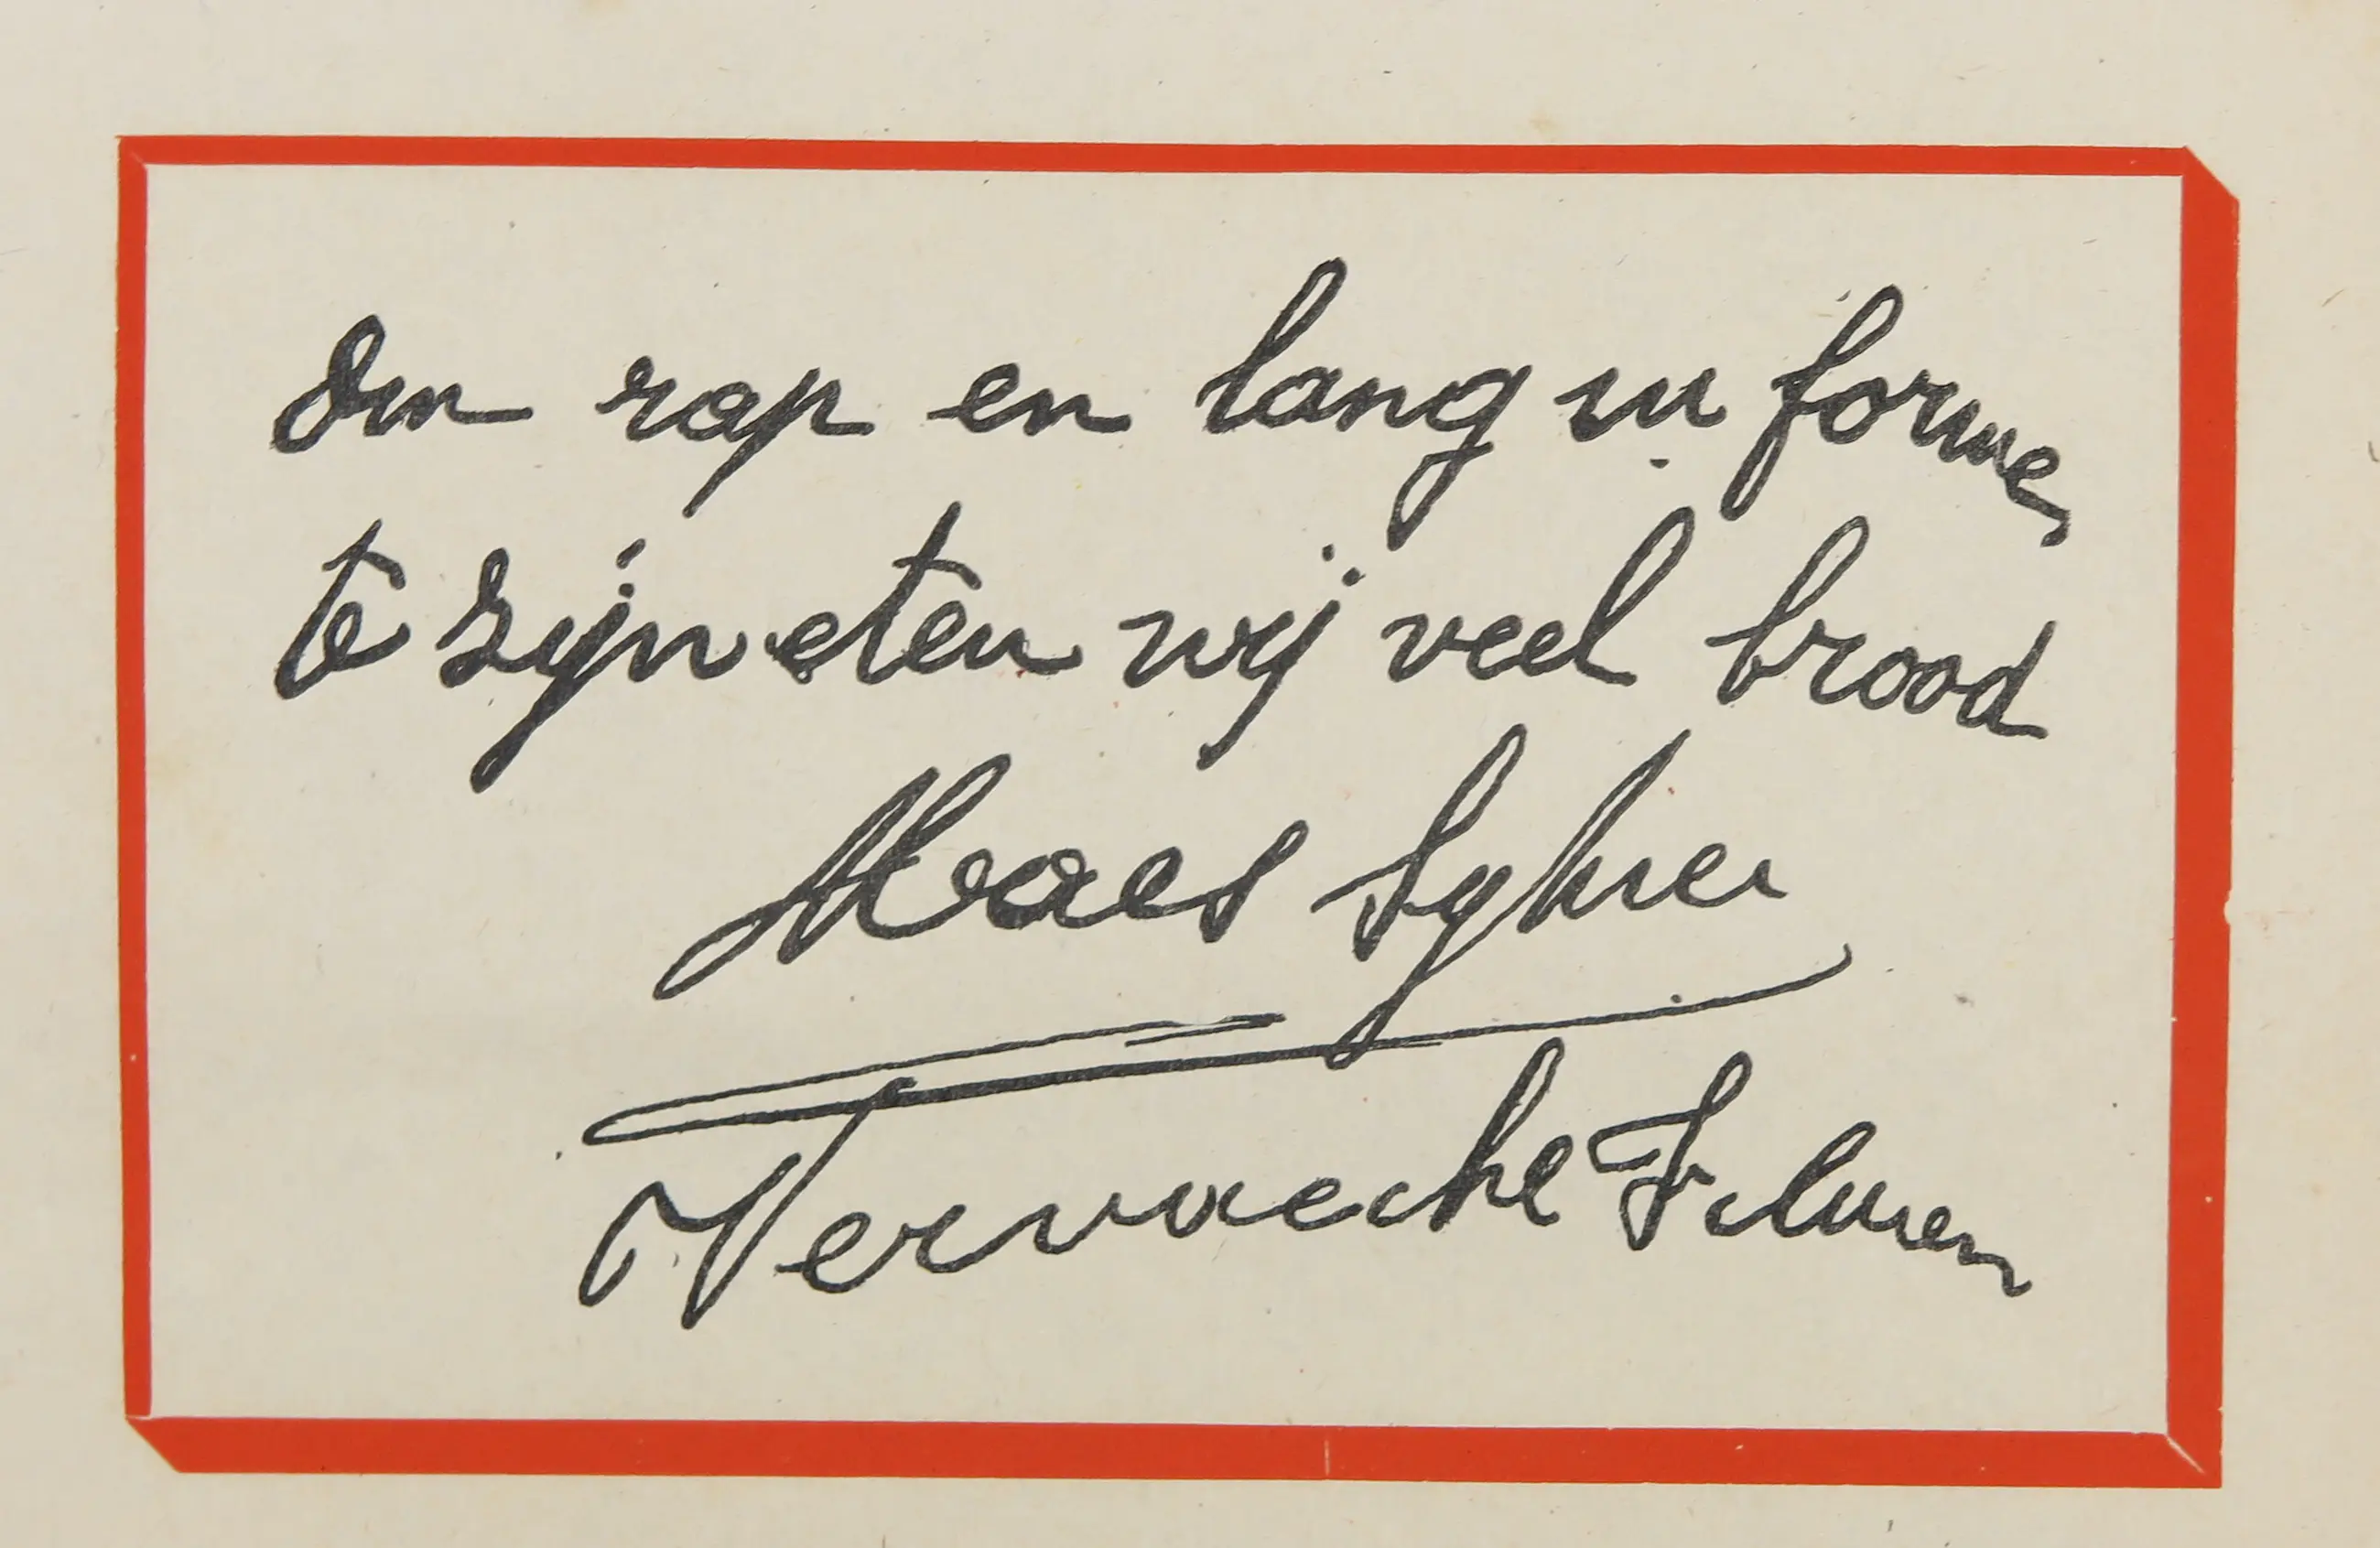 Om rap en lang in forme
te zijn eten wij veel brood
Maes Sylveer
Vervaecke Felicien